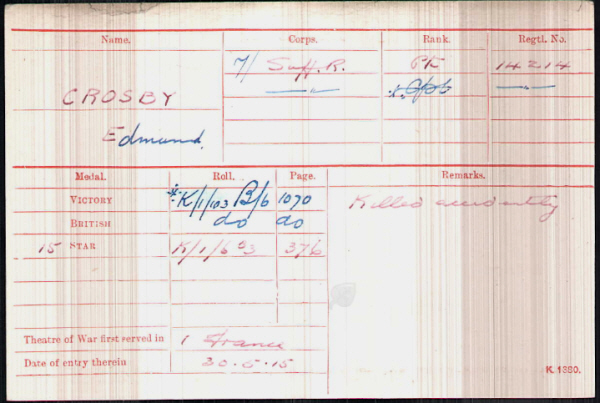 Name. Corps. Rank. Regtl. No.
7/ Suff. R. Pte 14214
CROSBY
Edmund.
Medal. Roll. Page. Remarks.
VICTORY *K/1/103 B/6 1070 Killed accidently
BRITISH do do
15 STAR K/1/6 376
Theatre of War first served in 1 France
Date of entry therein 30.5.15
K. 1380.